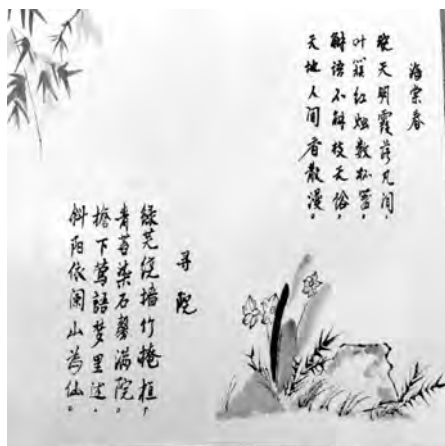 海棠春
晓天明霞落凡间，
叶簇红烛数杯置。
解语不解枝无俗，
天地人间香散漫。
寻院
绿芜绕墙竹掩桓，
青苔染石馨满院。
檐下莺語梦里过，
斜阳依阑山为仙。